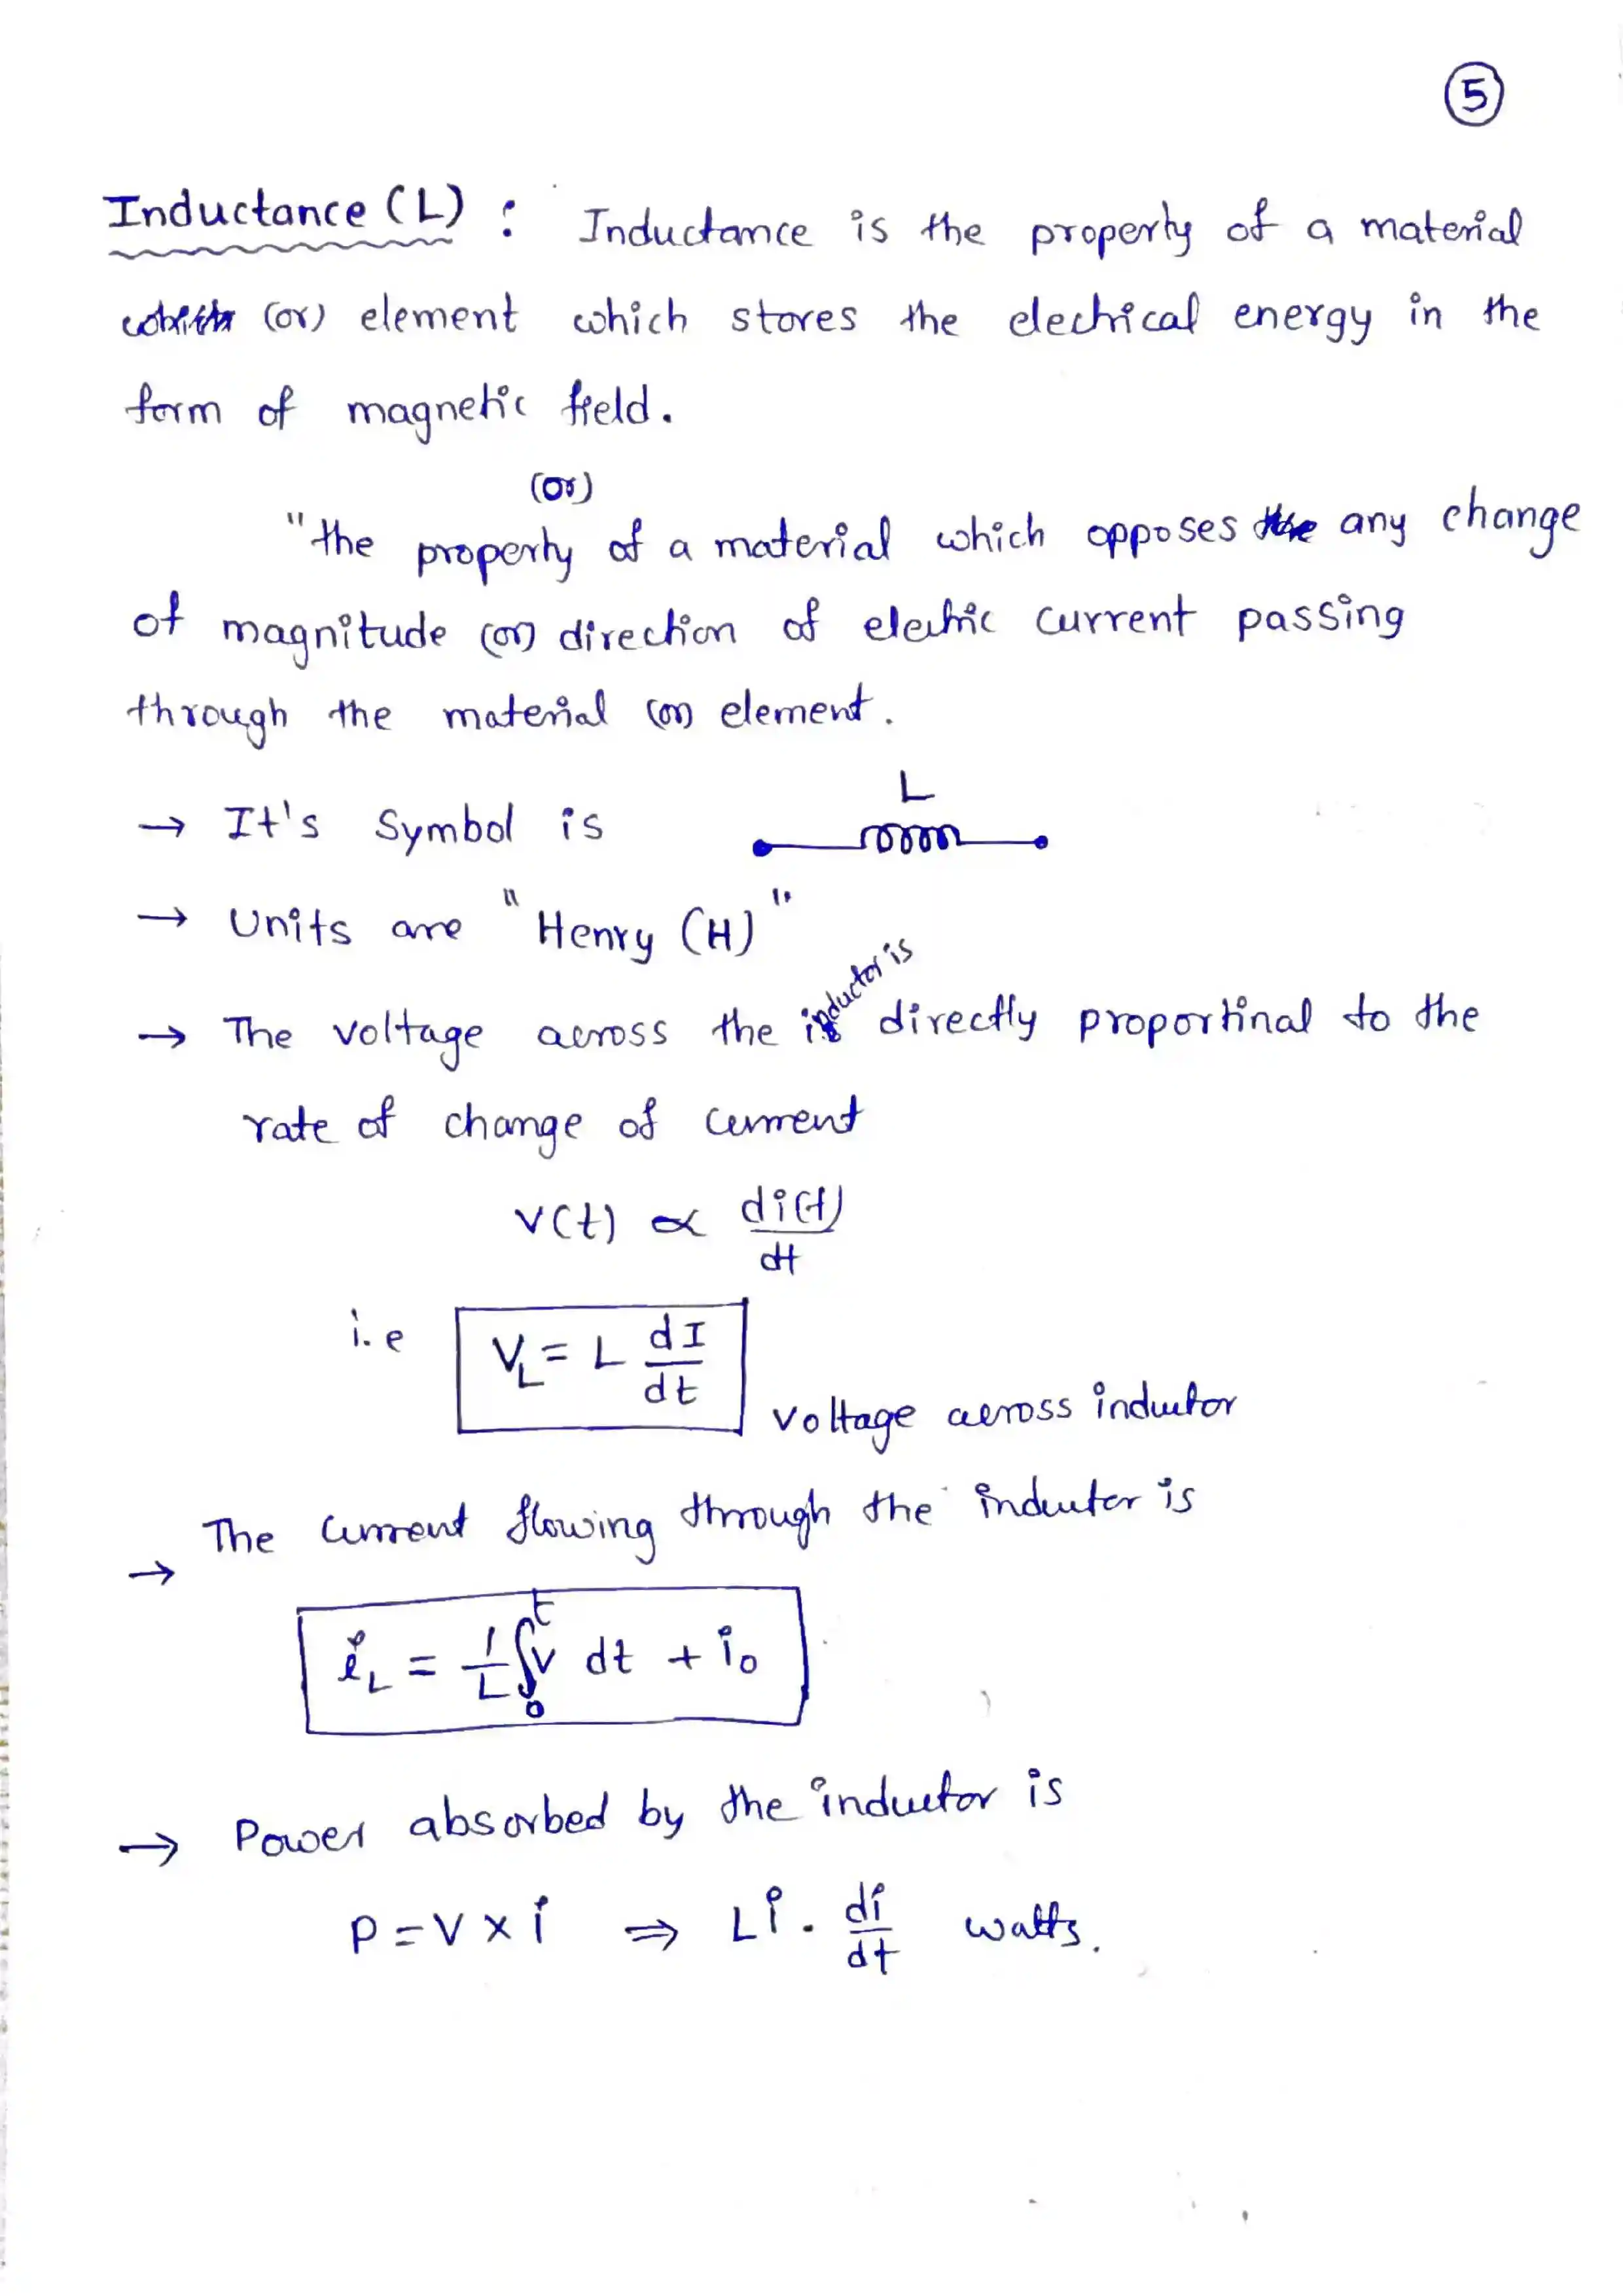 5
Inductance (L) : Inductance is the property of a material
(or) element which stores the electrical energy in the
form of magnetic field.
(or)
"the property of a material which opposes any change
of magnitude (or) direction of electric current passing
through the material (or) element.
L
→ It's Symbol is
→ Units are "Henry (H)"
→ The voltage across the inductor is directly proportinal to the
rate of change of current
v(t) ∝ di(t)/dt
i.e V_L = L dI/dt
voltage across inductor
→ The current flowing through the inductor is
i_L = 1/L ∫₀ᵗ v dt + i₀
→ Power absorbed by the inductor is
P = V × i ⇒ Li . di/dt watts.